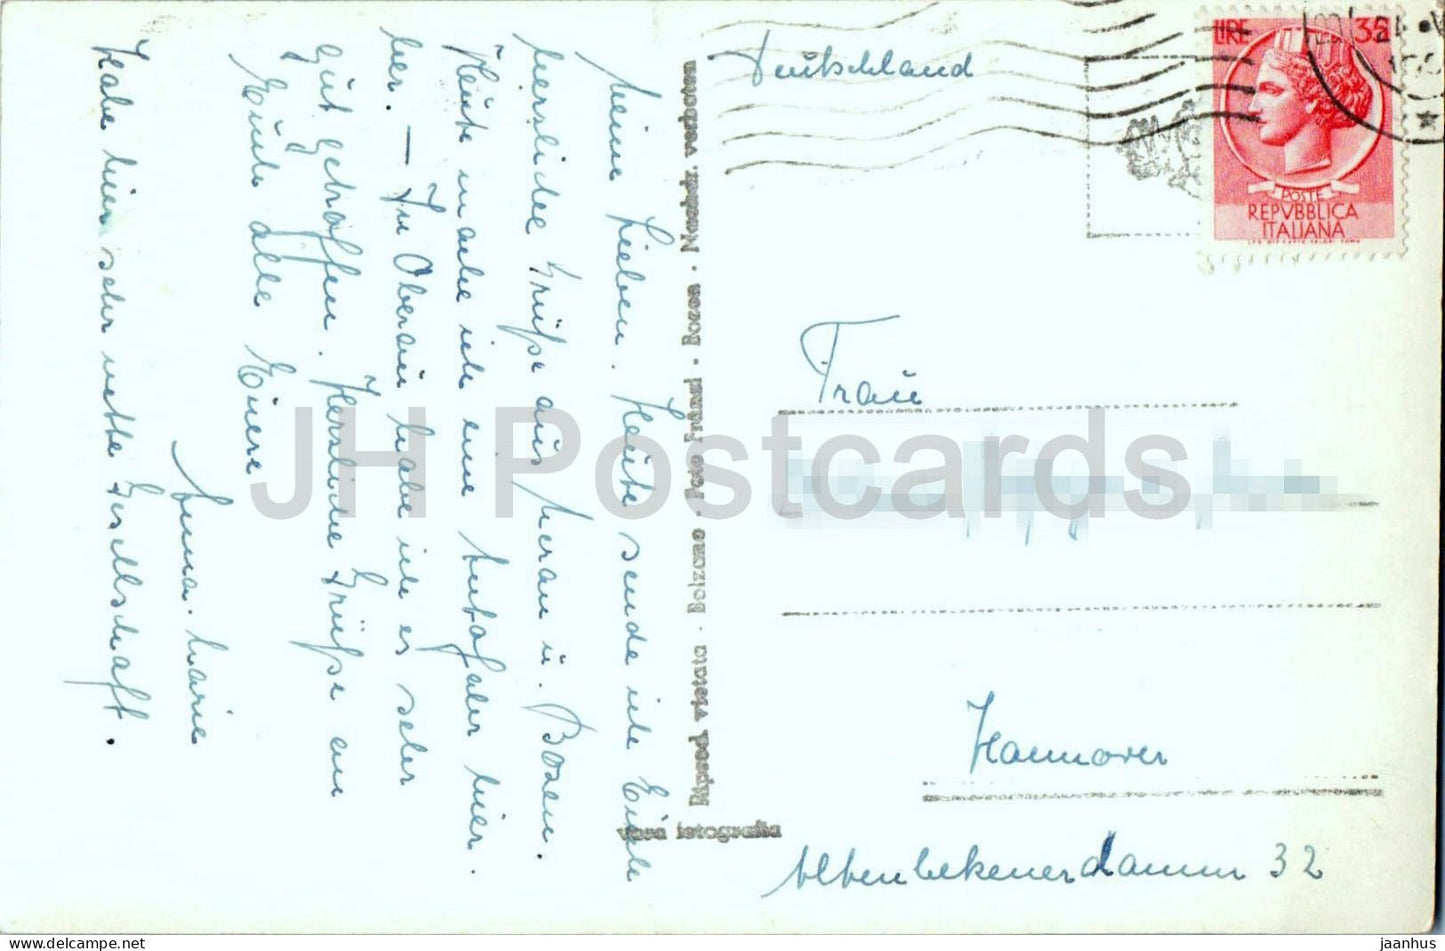 Meine Lieben. Heute sende ich Euch
herzliche Grüße aus Meran u. Bozen.
Heute mache ich eine hier.
hier. — In Oberau habe ich es sehr
gut getroffen. Herzliche Grüße an
Euch alle Eure
Anna-Marie
Habe hier sehr nette Gesellschaft.
Ripsod vietata - Bolzano - Foto Fränzl - Bozen - Nachdr. verboten
vera fotografia
Deutschland
LIRE 35
POSTE
REPVBBLICA
ITALIANA
Frau
Hannover
Altenbekenerdamm 32
JH Postcards
jaanhus
www.delcampe.net